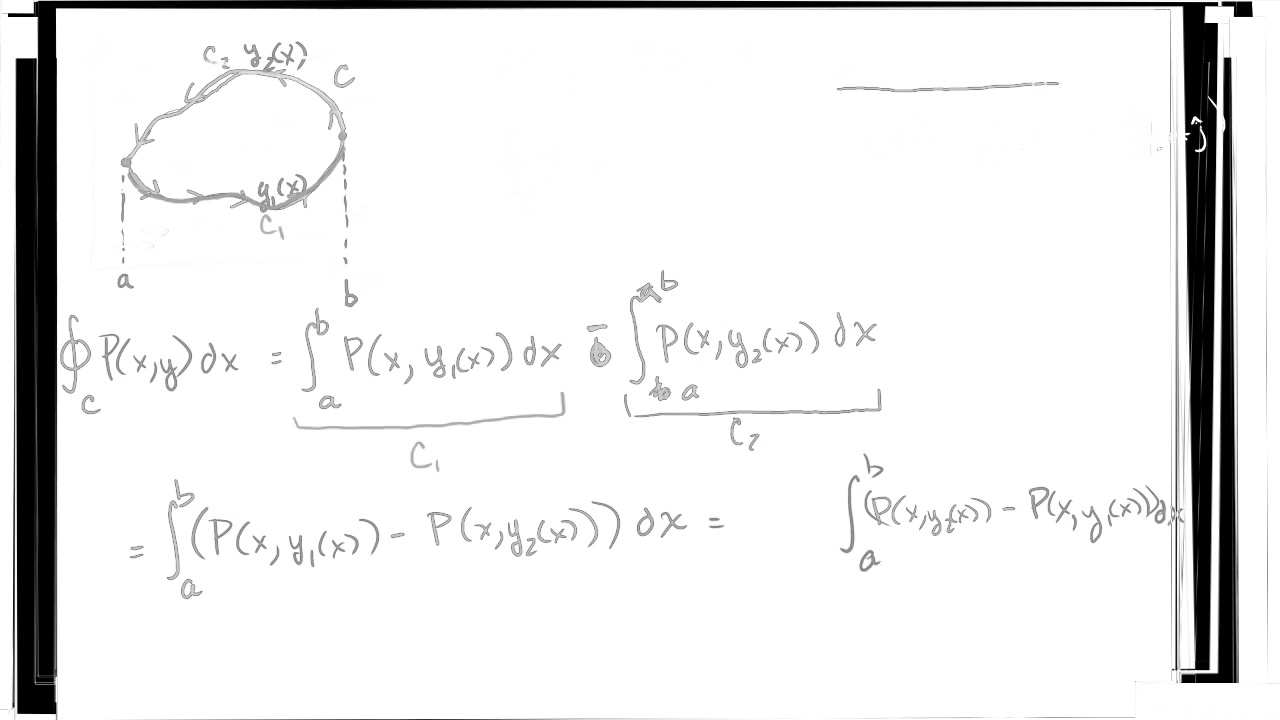 C₂ y₂(x) C
y₁(x)
C₁
a b
ĵ)
∮_C P(x,y) dx = ∫_a^b P(x, y₁(x)) dx - ∫_a^b P(x, y₂(x)) dx
C₁ C₂
= ∫_a^b (P(x, y₁(x)) - P(x, y₂(x))) dx = ∫_a^b (P(x, y₂(x)) - P(x, y₁(x))) dx